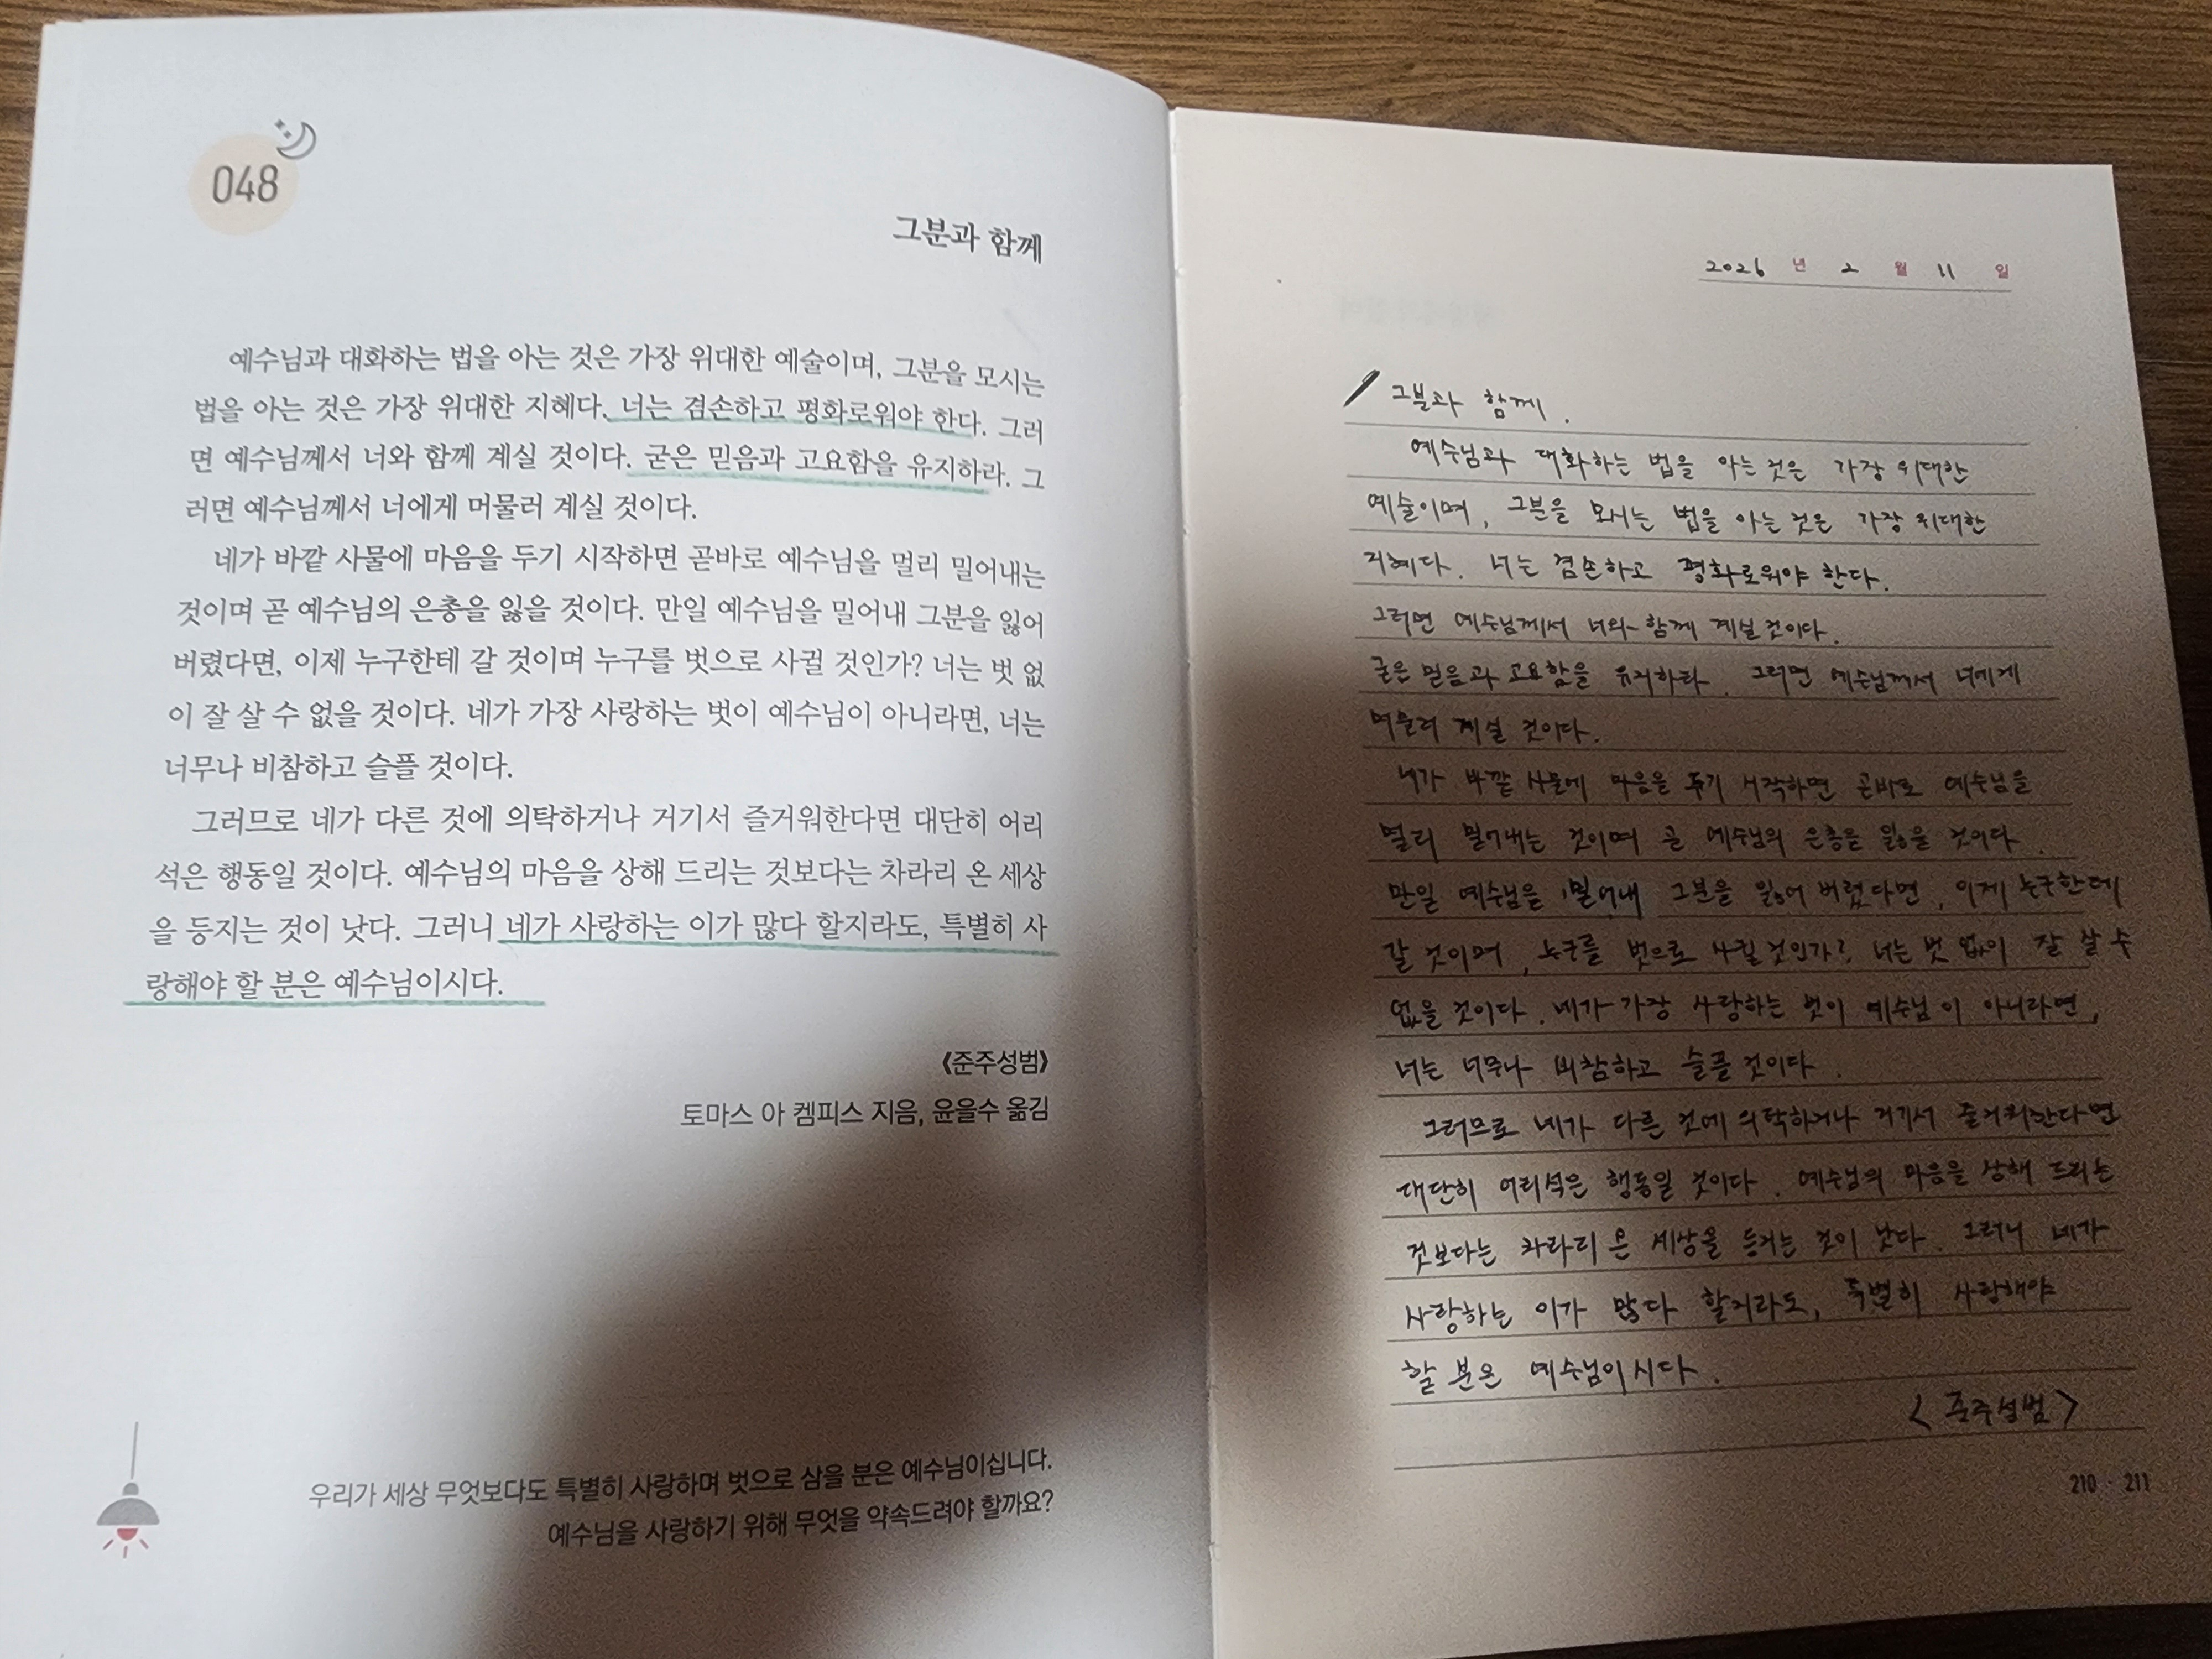 048
그분과 함께
예수님과 대화하는 법을 아는 것은 가장 위대한 예술이며, 그분을 모시는
법을 아는 것은 가장 위대한 지혜다. 너는 겸손하고 평화로워야 한다. 그러
면 예수님께서 너와 함께 계실 것이다. 굳은 믿음과 고요함을 유지하라. 그
러면 예수님께서 너에게 머물러 계실 것이다.
네가 바깥 사물에 마음을 두기 시작하면 곧바로 예수님을 멀리 밀어내는
것이며 곧 예수님의 은총을 잃을 것이다. 만일 예수님을 밀어내 그분을 잃어
버렸다면, 이제 누구한테 갈 것이며 누구를 벗으로 사귈 것인가? 너는 벗 없
이 잘 살 수 없을 것이다. 네가 가장 사랑하는 벗이 예수님이 아니라면, 너는
너무나 비참하고 슬플 것이다.
그러므로 네가 다른 것에 의탁하거나 거기서 즐거워한다면 대단히 어리
석은 행동일 것이다. 예수님의 마음을 상해 드리는 것보다는 차라리 온 세상
을 등지는 것이 낫다. 그러니 네가 사랑하는 이가 많다 할지라도, 특별히 사
랑해야 할 분은 예수님이시다.
《준주성범》
토마스 아 켐피스 지음, 윤을수 옮김
우리가 세상 무엇보다도 특별히 사랑하며 벗으로 삼을 분은 예수님이십니다.
예수님을 사랑하기 위해 무엇을 약속드려야 할까요?
2026 년 2 월 11 일
그분과 함께.
예수님과 대화하는 법을 아는 것은 가장 위대한
예술이며, 그분을 모시는 법을 아는 것은 가장 위대한
지혜다. 너는 겸손하고 평화로워야 한다.
그러면 예수님께서 너와 함께 계실 것이다.
굳은 믿음과 고요함을 유지하라. 그러면 예수님께서 너에게
머물러 계실 것이다.
네가 바깥 사물에 마음을 두기 시작하면 곧바로 예수님을
멀리 밀어내는 것이며 곧 예수님의 은총을 잃을 것이다.
만일 예수님을 밀어내 그분을 잃어 버렸다면, 이제 누구한테
갈 것이며, 누구를 벗으로 사귈 것인가? 너는 벗 없이 잘 살 수
없을 것이다. 네가 가장 사랑하는 벗이 예수님이 아니라면,
너는 너무나 비참하고 슬플 것이다.
그러므로 네가 다른 것에 의탁하거나 거기서 즐거워한다면
대단히 어리석은 행동일 것이다. 예수님의 마음을 상해 드리는
것보다는 차라리 온 세상을 등지는 것이 낫다. 그러니 네가
사랑하는 이가 많다 할지라도, 특별히 사랑해야
할 분은 예수님이시다.
<준주성범>
210 · 211